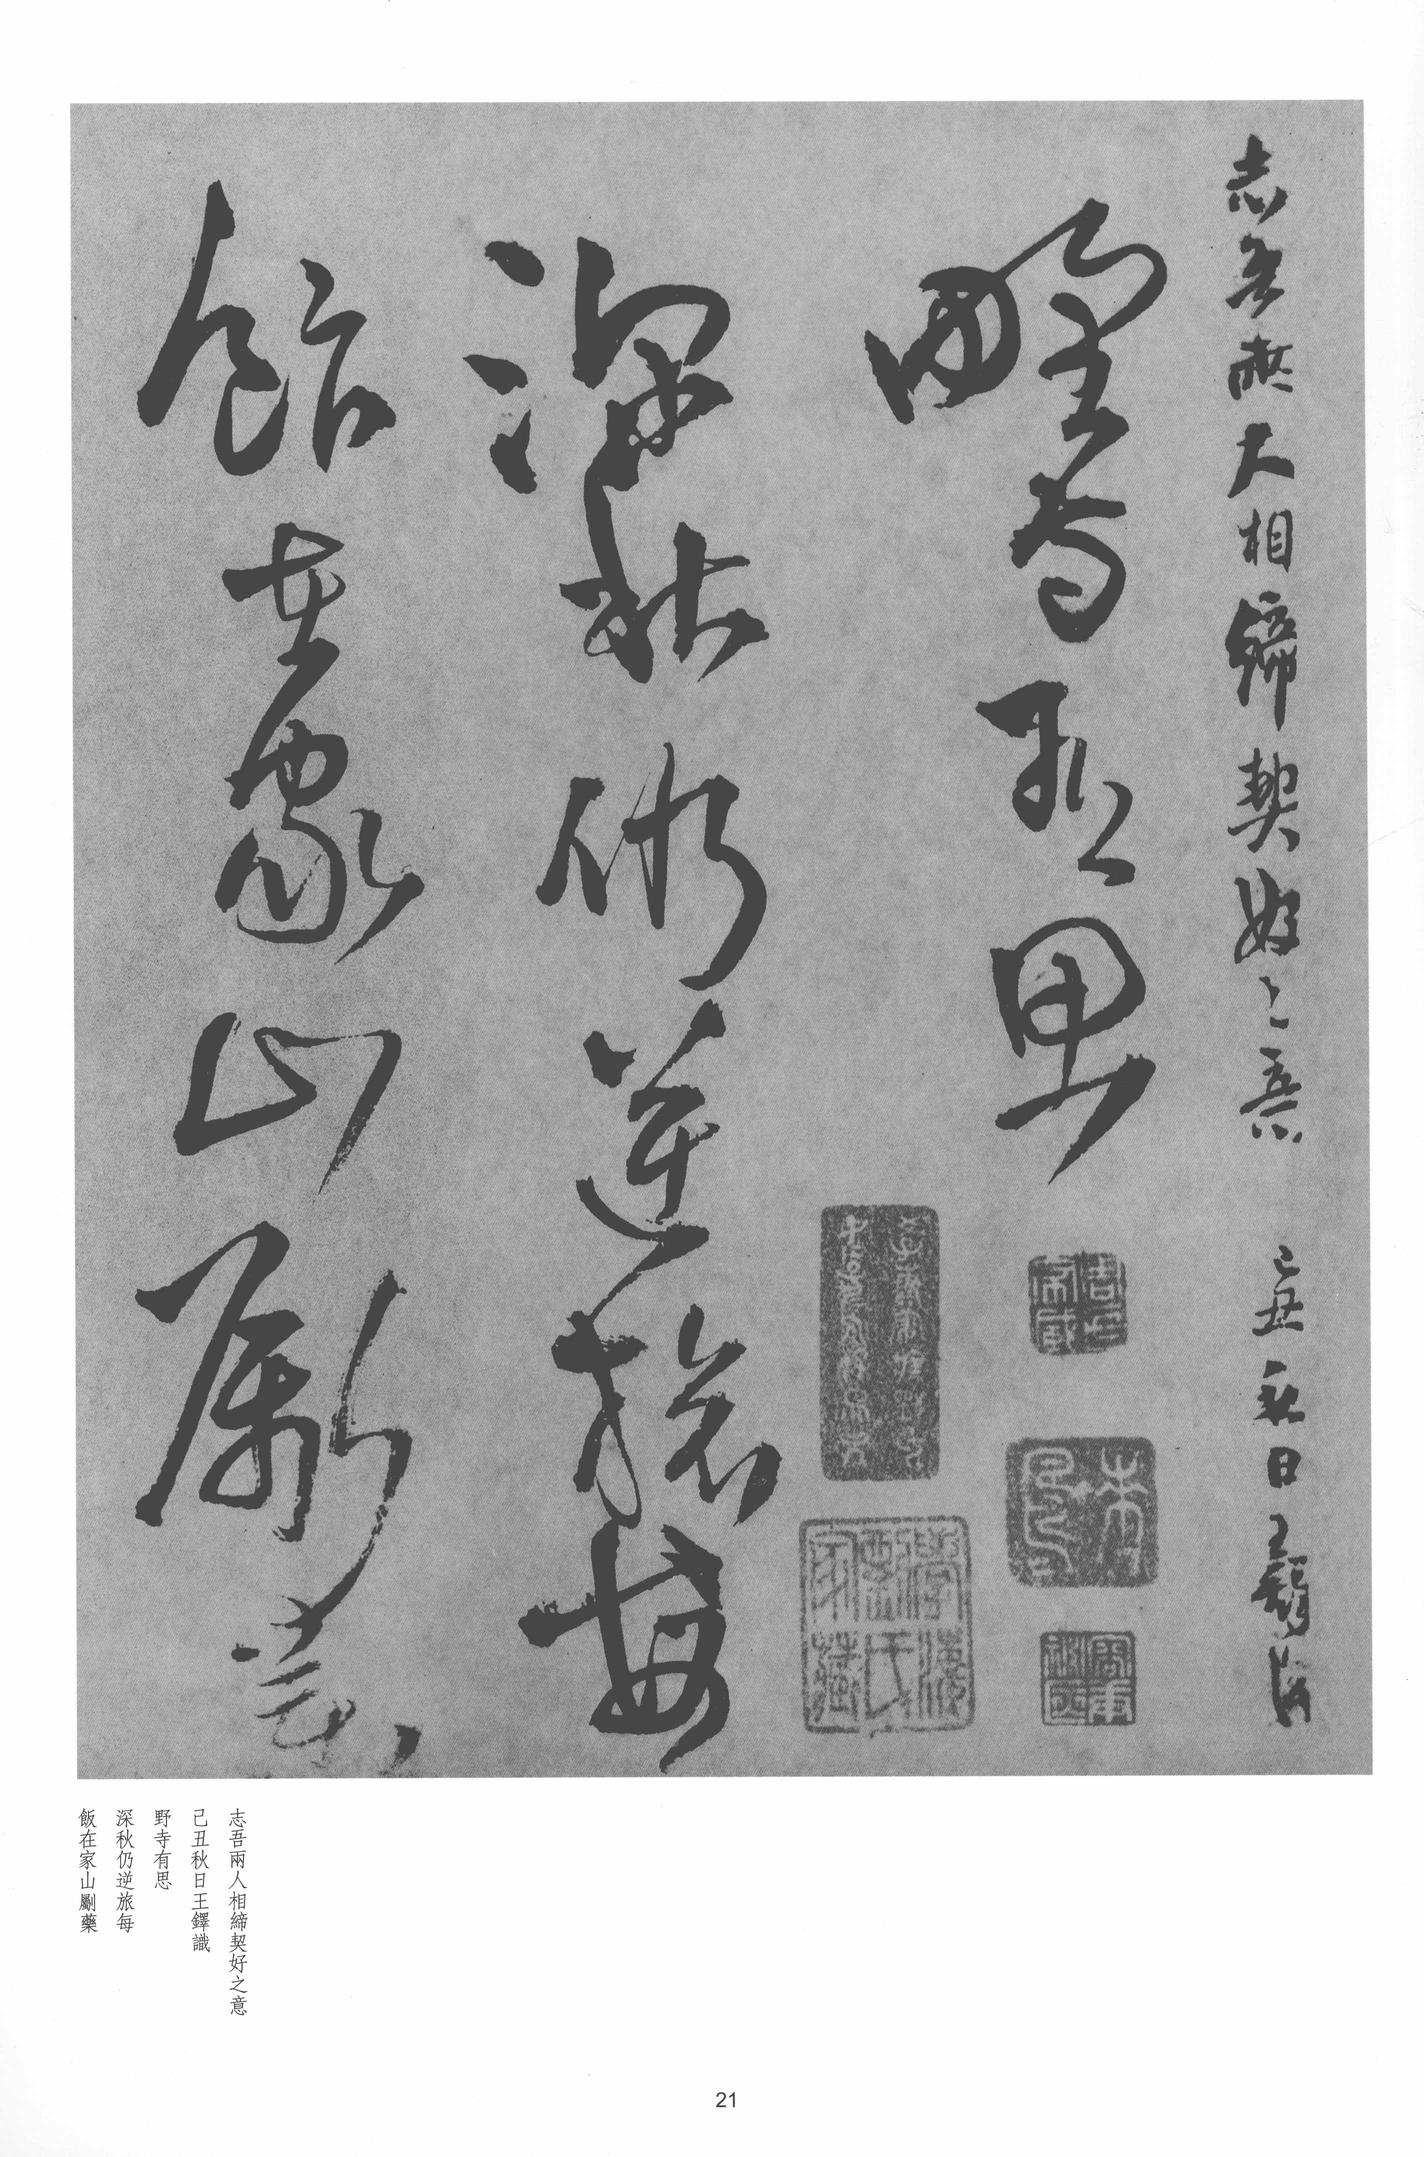 志吾兩大相締契好之意 己丑秋日王鐸識
野寺有思
深秋仍逆旅每
飯在家山劚藥
志吾兩人相締契好之意
己丑秋日王鐸識
野寺有思
深秋仍逆旅每
飯在家山劚藥
21